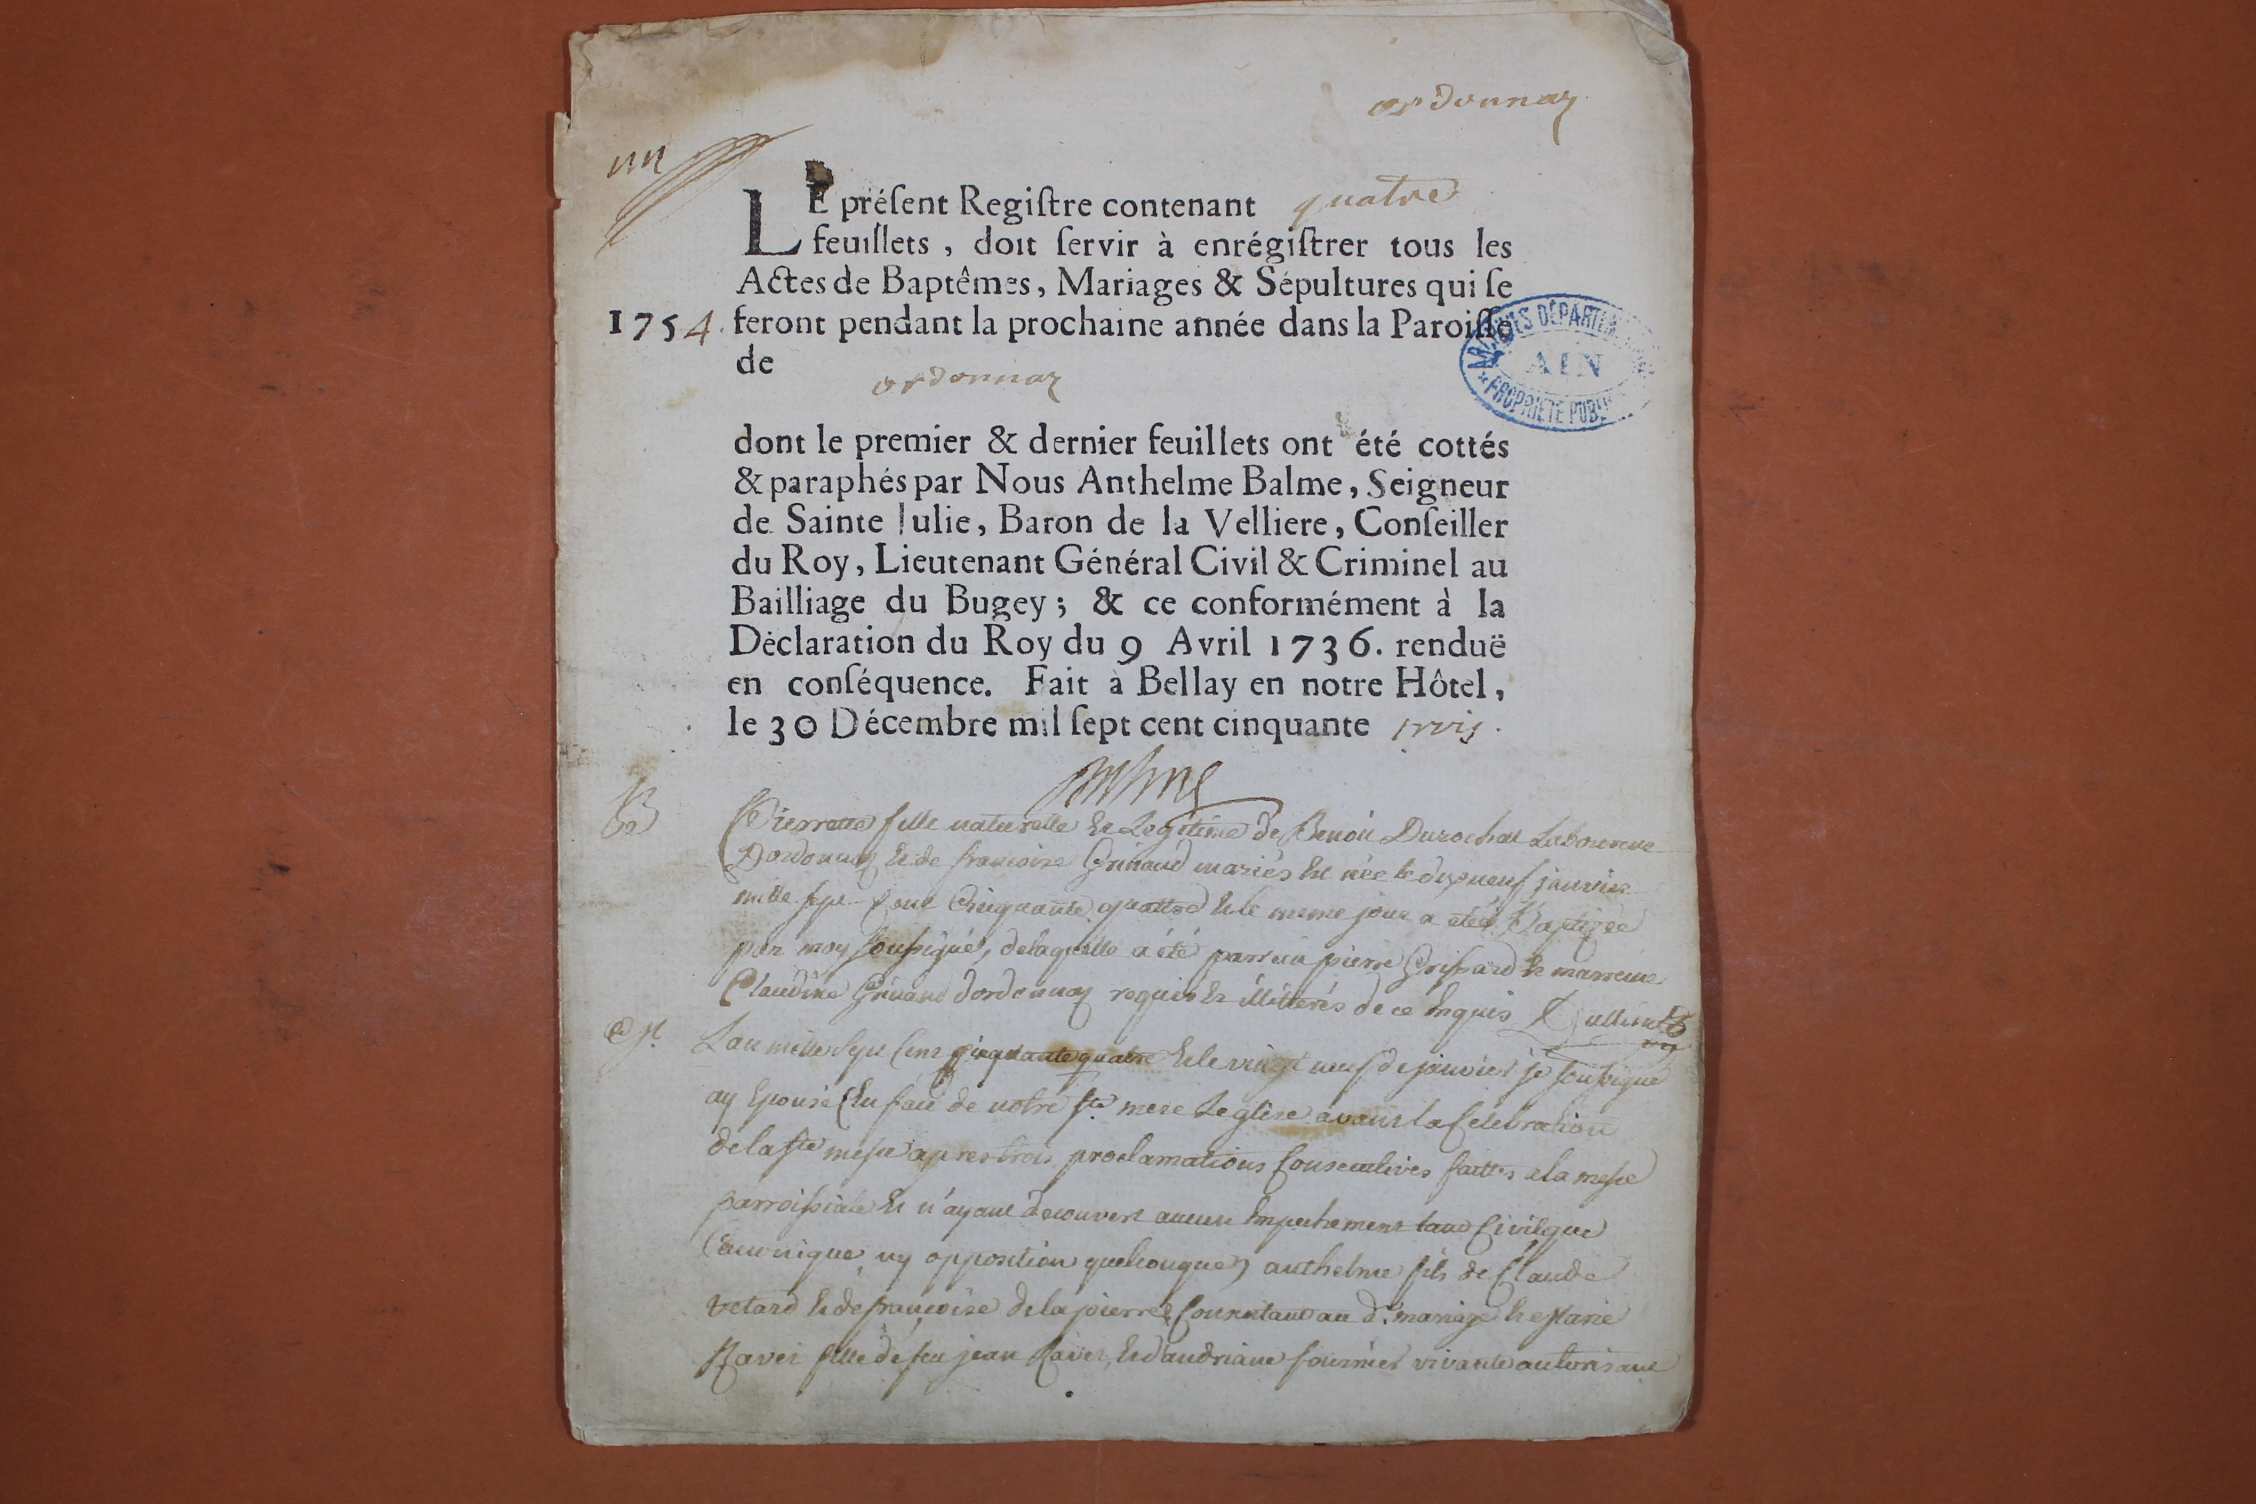 ordonnaz
un
LE préſent Regiſtre contenant quatre
feuillets, doit ſervir à enrégiſtrer tous les
Actes de Baptêmes, Mariages & Sépultures qui ſe
1754. feront pendant la prochaine année dans la Paroiſſe
de
ordonnaz
ARCHIVES DÉPARTEMENTALES
AIN
* PROPRIÉTÉ PUBLIQUE
dont le premier & dernier feuillets ont été cottés
& paraphés par Nous Anthelme Balme, Seigneur
de Sainte Julie, Baron de la Velliere, Conſeiller
du Roy, Lieutenant Général Civil & Criminel au
Bailliage du Bugey; & ce conformément à la
Déclaration du Roy du 9 Avril 1736. renduë
en conſéquence. Fait à Bellay en notre Hôtel,
le 30 Décembre mil ſept cent cinquante trois.
Balme
B
Pierrette fille naturelle et Legitime de Benoit Durochat Laboureur
Dordonnaz et de francoise Grinand mariés est née le dixneuf janvier
mille sept Cent Cinquante quattre et le meme jour a eté Baptizée
par moy soussigné, de laquelle a été parrein pierre Grissard et marreine
Claudine Grinand dordonnaz requis et illitterés de ce enquis
M
L'an mille sept Cent cinquante quatre et le vingt neuf de janvier je soussigné
ay epousé en face de notre ste mere Leglise avant la Celebration
de la ste messe apres trois proclamations Consecutives faittes a la messe
parroissiale et n'ayant decouvert aucun empechement tant Civil que
Canonique ny opposition quelconque, anthelme fils de Claude
Vetard et de francoise de la pierre Consentant au dt mariage et Marie
Raver fille de feu jean Raver et d'andriane fournier vivante autorisant